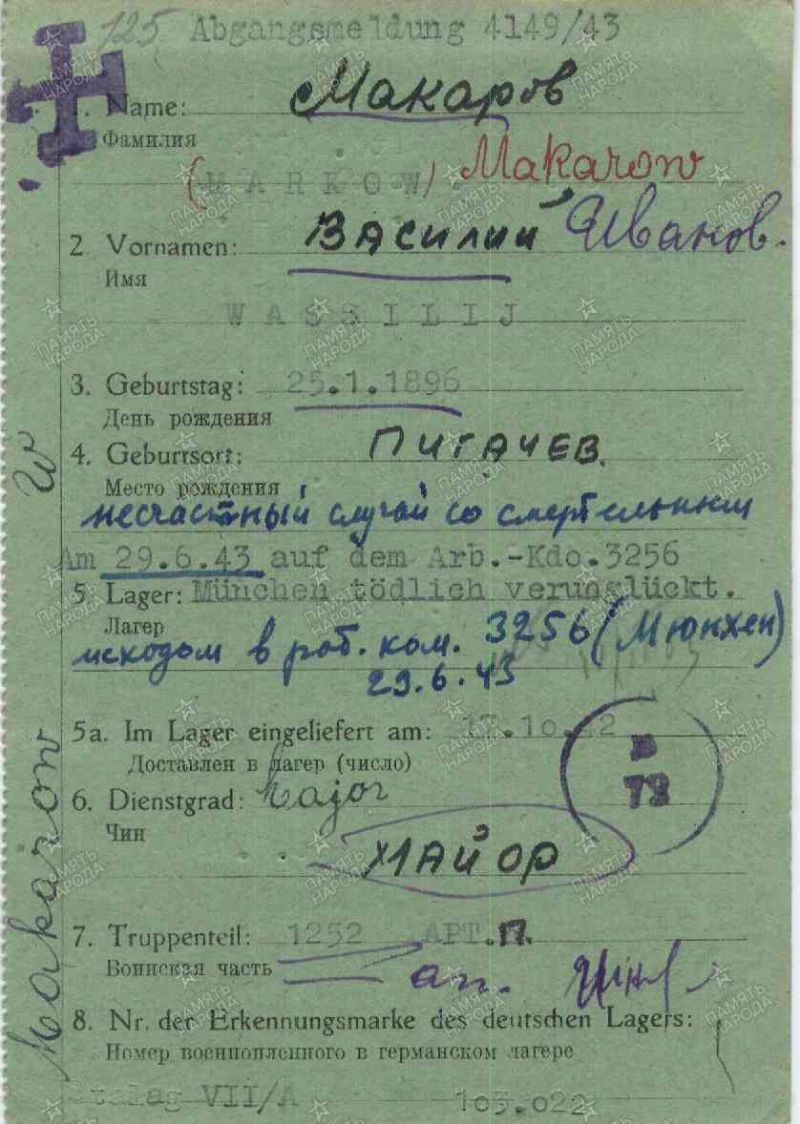 125 Abgangsmeldung 4149/43
1. Name: Макаров
Фамилия
(MARKOW). Makarow
2. Vornamen: ВАСИЛИЙ Иванов.
Имя
WASSILIJ
3. Geburtstag: 25.1.1896
День рождения
4. Geburtsort: ПИГАЧЕВ.
Место рождения
несчастный случай со смертельным
Am 29.6.43 auf dem Arb.-Kdo.3256
5. Lager: München tödlich verunglückt.
Лагер
исходом в раб. ком. 3256 (Мюнхен)
29.6.43
5a. Im Lager eingeliefert am: 17.10.42
Доставлен в лагер (число)
6. Dienstgrad: Major
Чин
МАЙОР
73
7. Truppenteil: 1252 АРТ.П.
Воинская часть
ап.
8. Nr. der Erkennungsmarke des deutschen Lagers:
Номер военнопленного в германском лагере
Stalag VII/A 103.022
Makarow W
ПАМЯТЬ НАРОДА